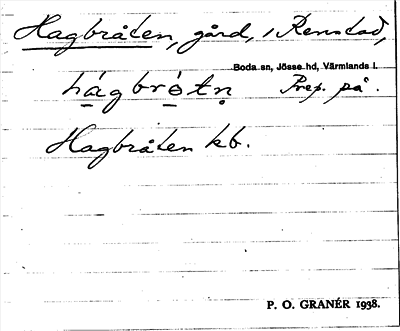 Hagbråten, gård, i Renstad,
Boda sn, Jösse hd, Värmlands l.
hágbròtn̥ Prep. på.
Hagbråten kb.
P. O. GRANÉR 1938.